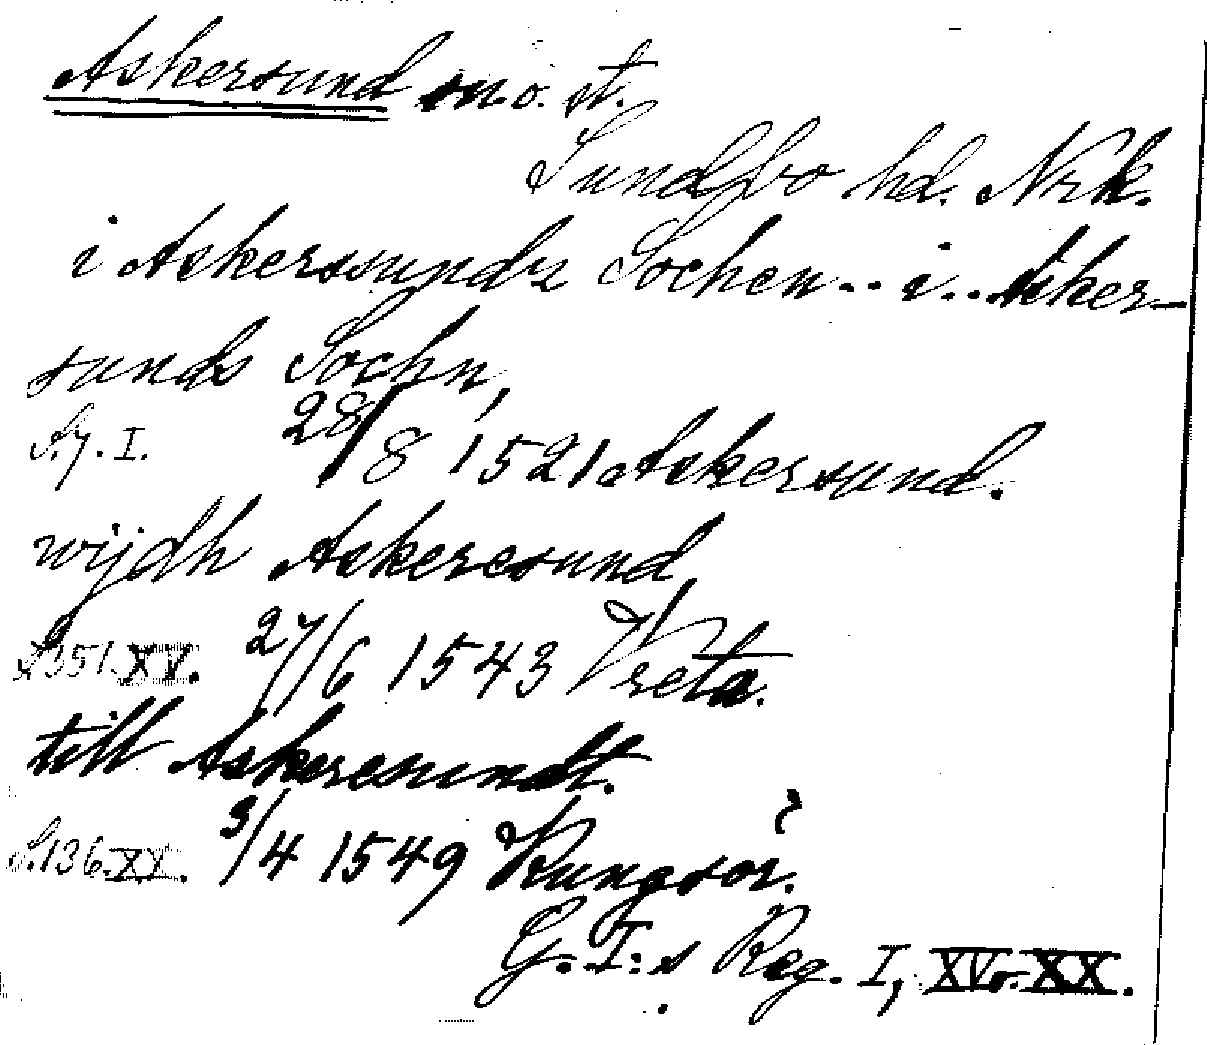 Askersund sn o. st.
Sundbo hd. Nrk.
i Askerssundz Sochen.. i.. Asker-
sunds Sochn,
S.7. I. 28/8 1521 Askersund.
wijdh Askeresund
S.351. XV. 27/6 1543 Vreta.
till Askeresundt.
S.136. XX. 3/4 1549 Kungsör.
G. I:s Reg. I, XV o. XX.